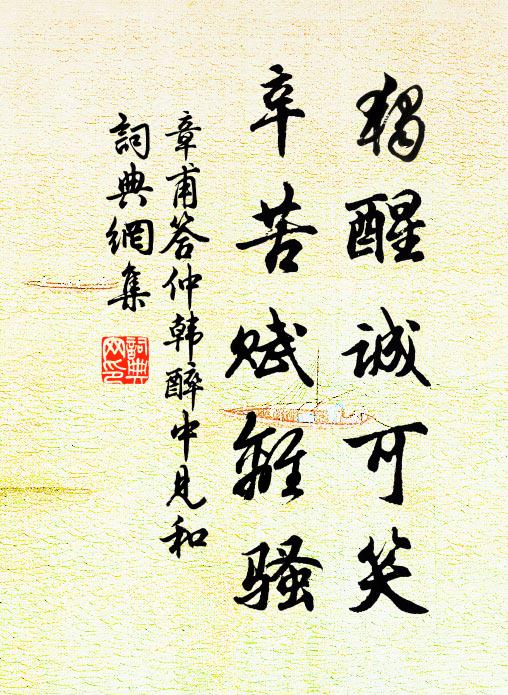 独醒诚可笑
辛苦赋离骚
章甫答仲韩醉中见和
詞典網集
詞典
网印